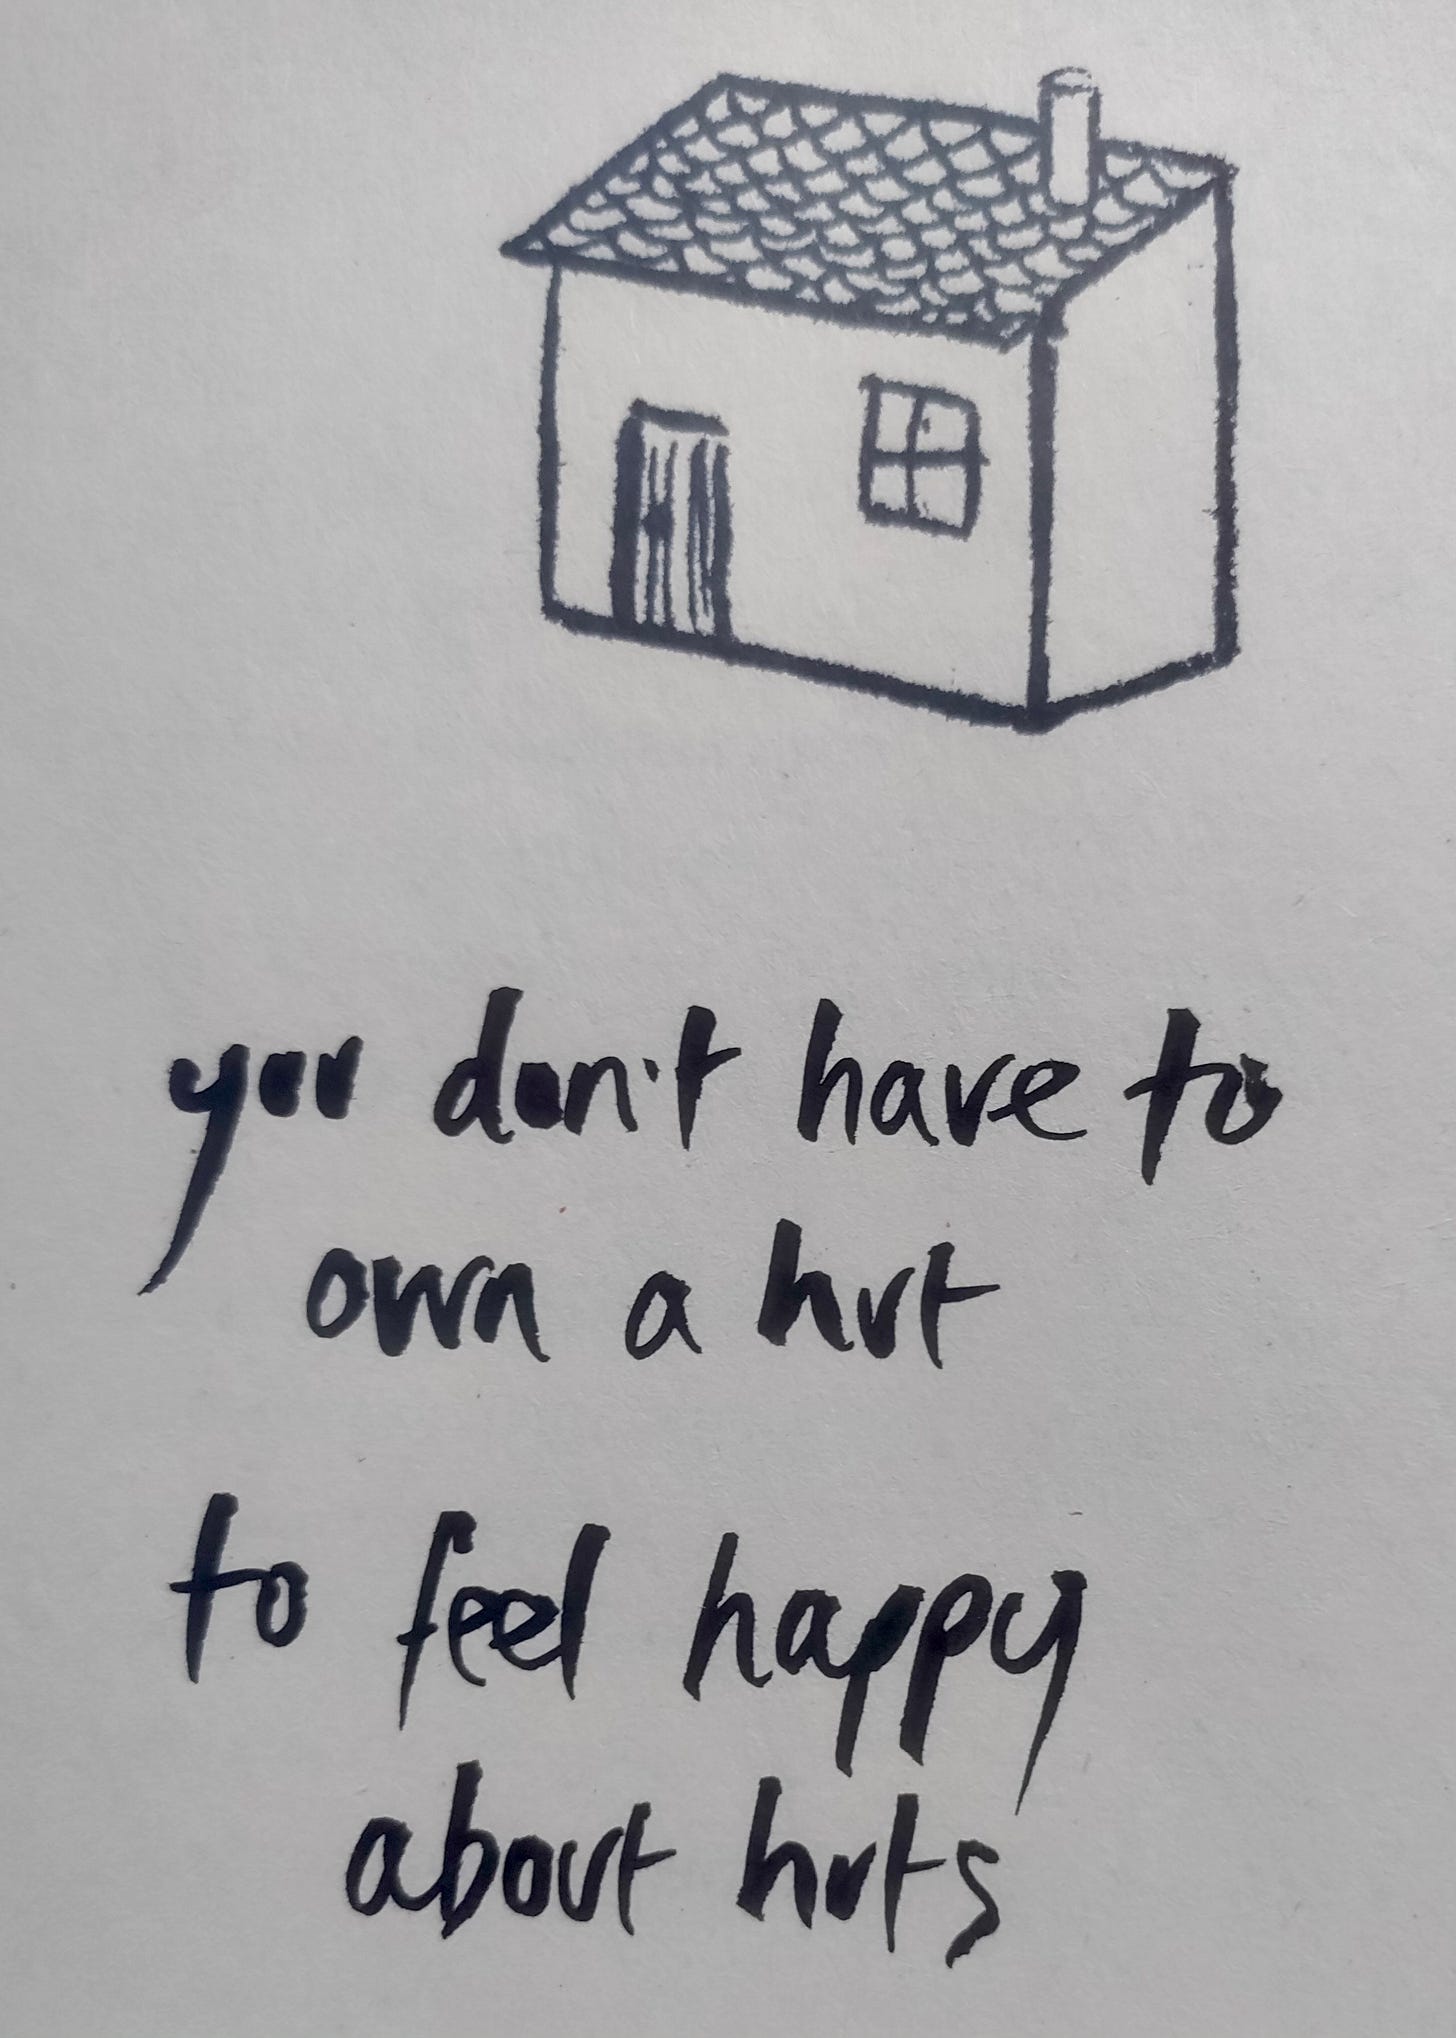 you don't have to
own a hut
to feel happy
about huts